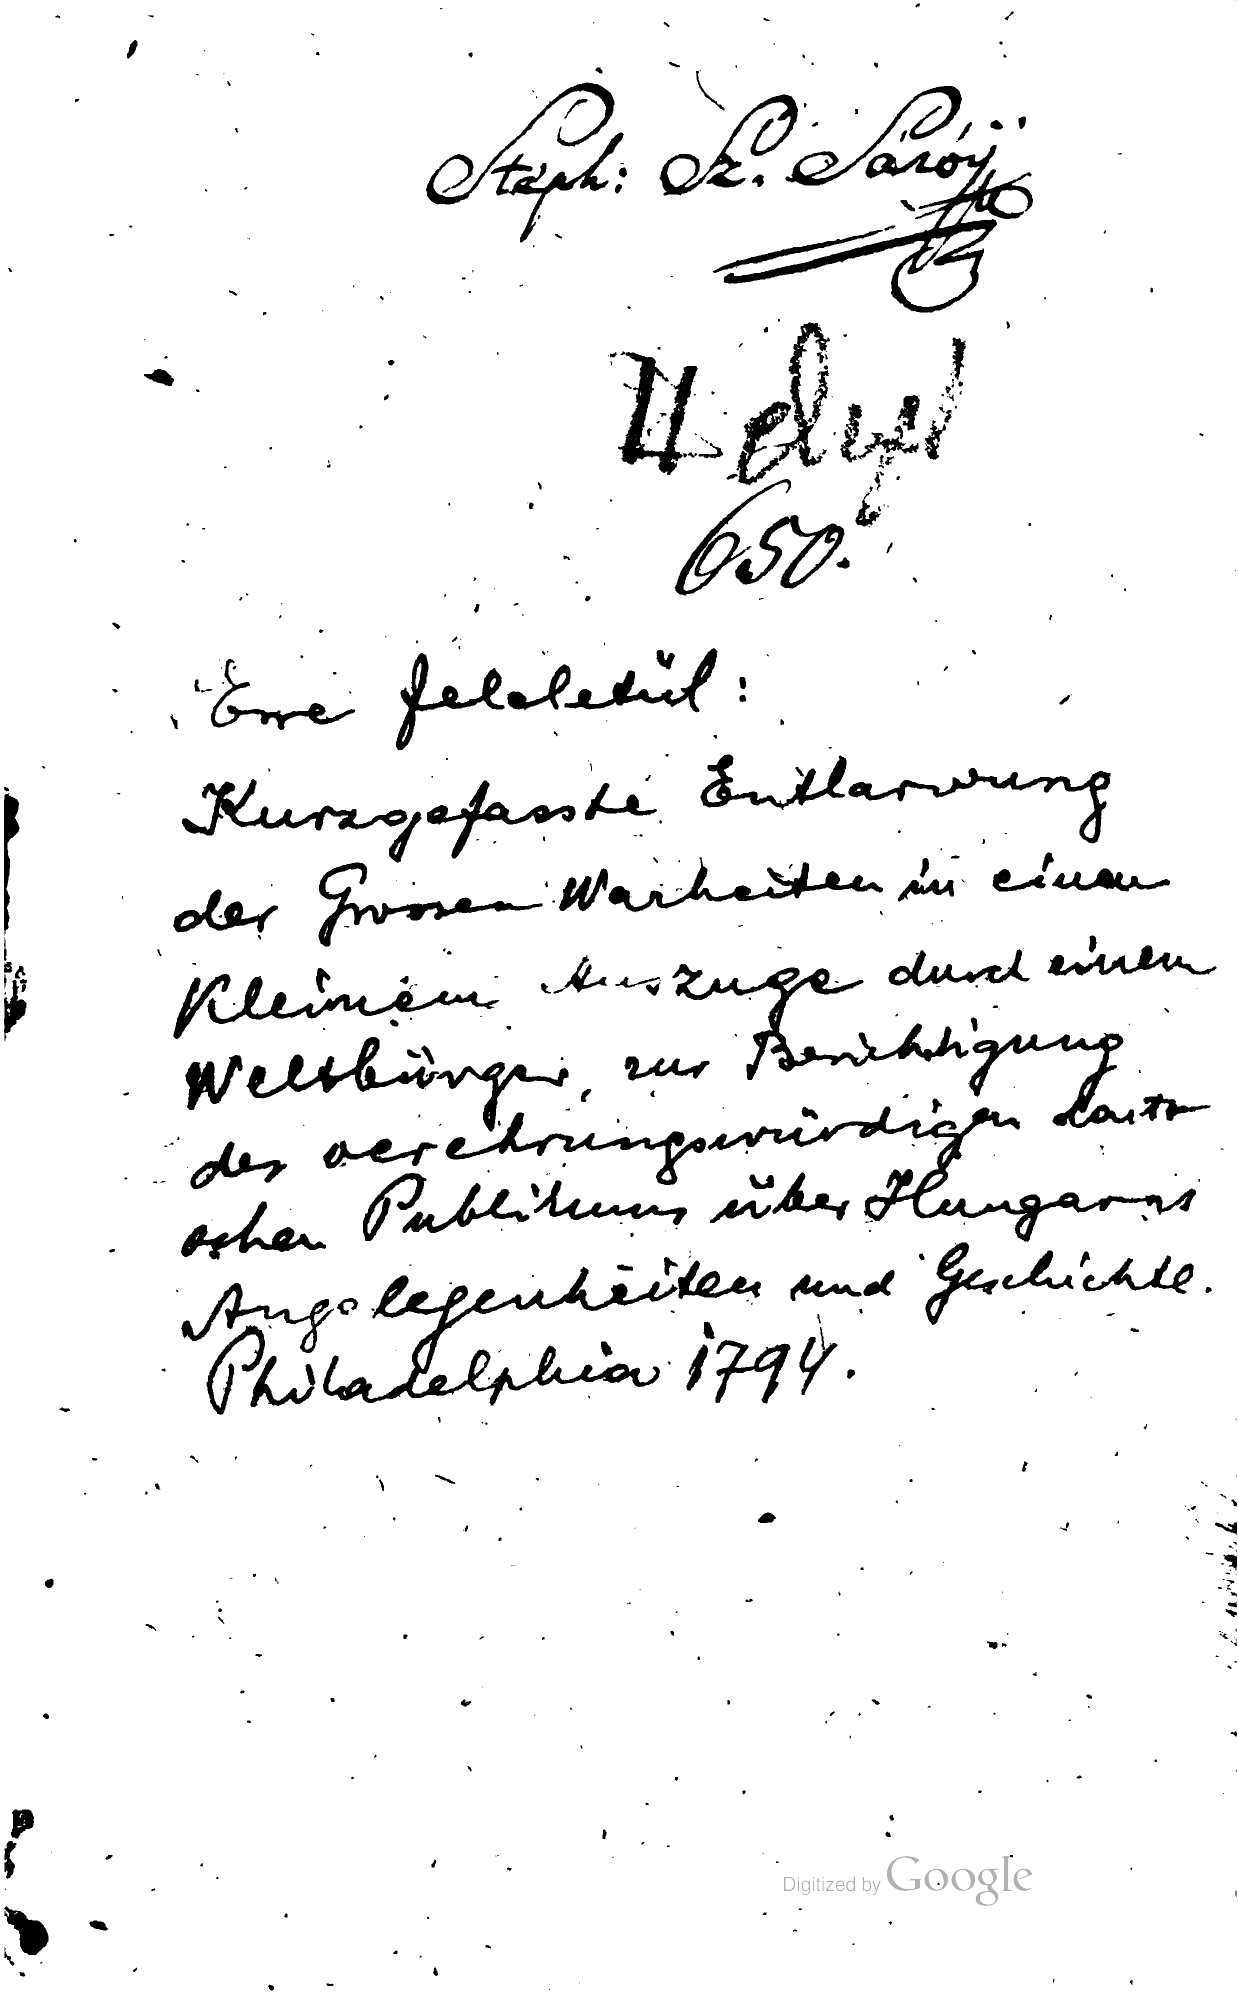 Steph: Sz. Sáróÿ
650.
Erre feleletül:
Kurzgefasste Entlarvung
der Grossen Warheiten in einen
Kleinem Auszuge durch einem
Weltbürger, zur Berichtigung
des verehrungswürdigen
schen Publikums über Hungarns
Angelegenheiten und Geschichte.
Philadelphia 1794.
Digitized by Google